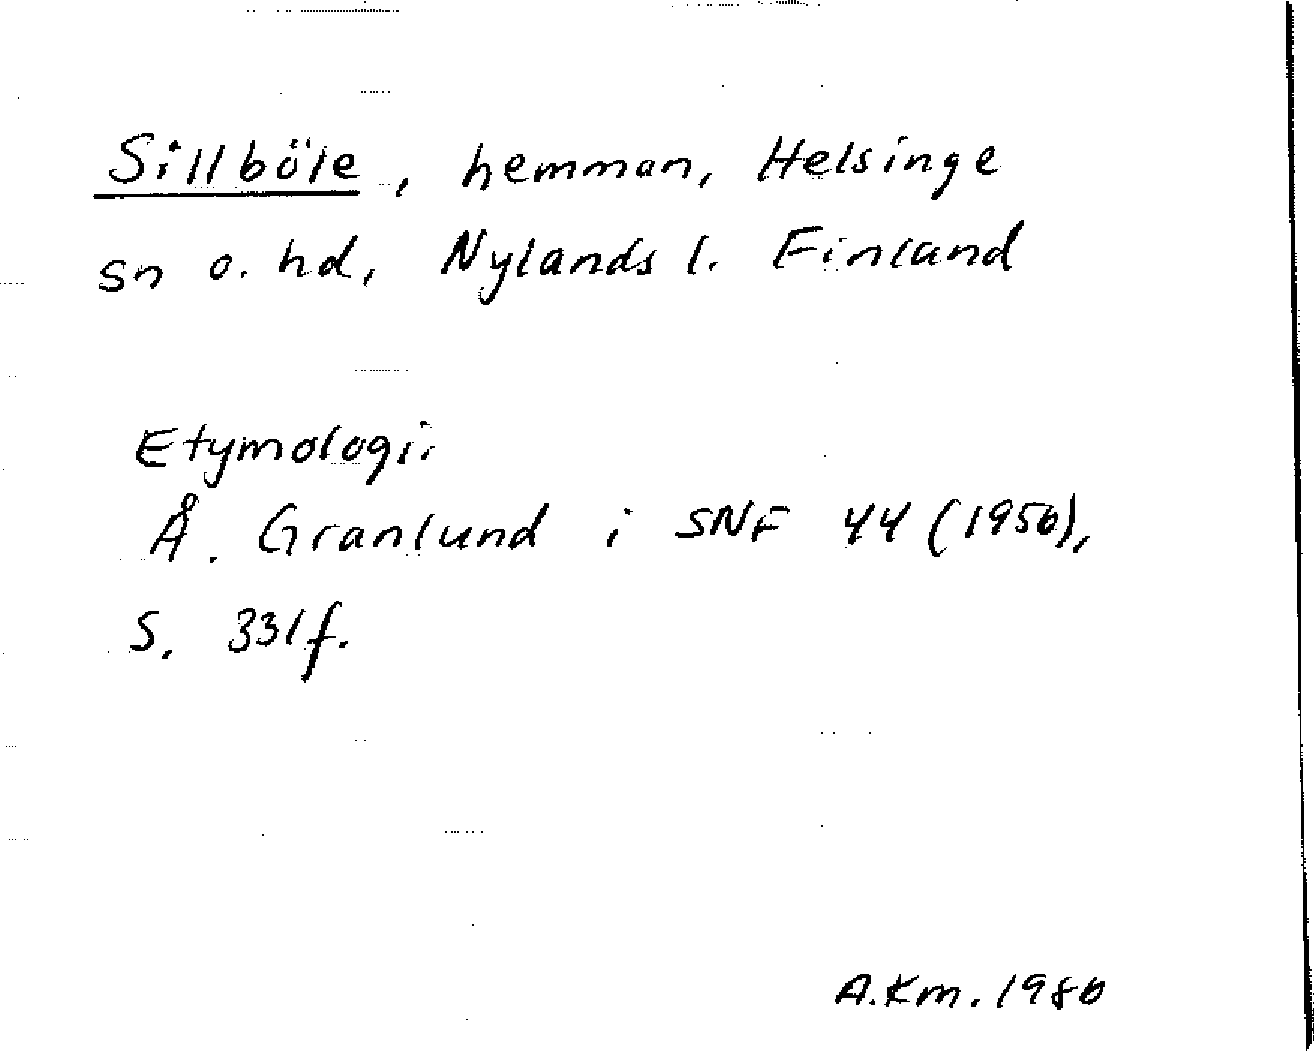 Sillböle, hemman, Helsinge
sn o. hd, Nylands l. Finland
Etymologi:
Å. Granlund i SNF 44 (1956),
S. 331f.
A.Km. 1986